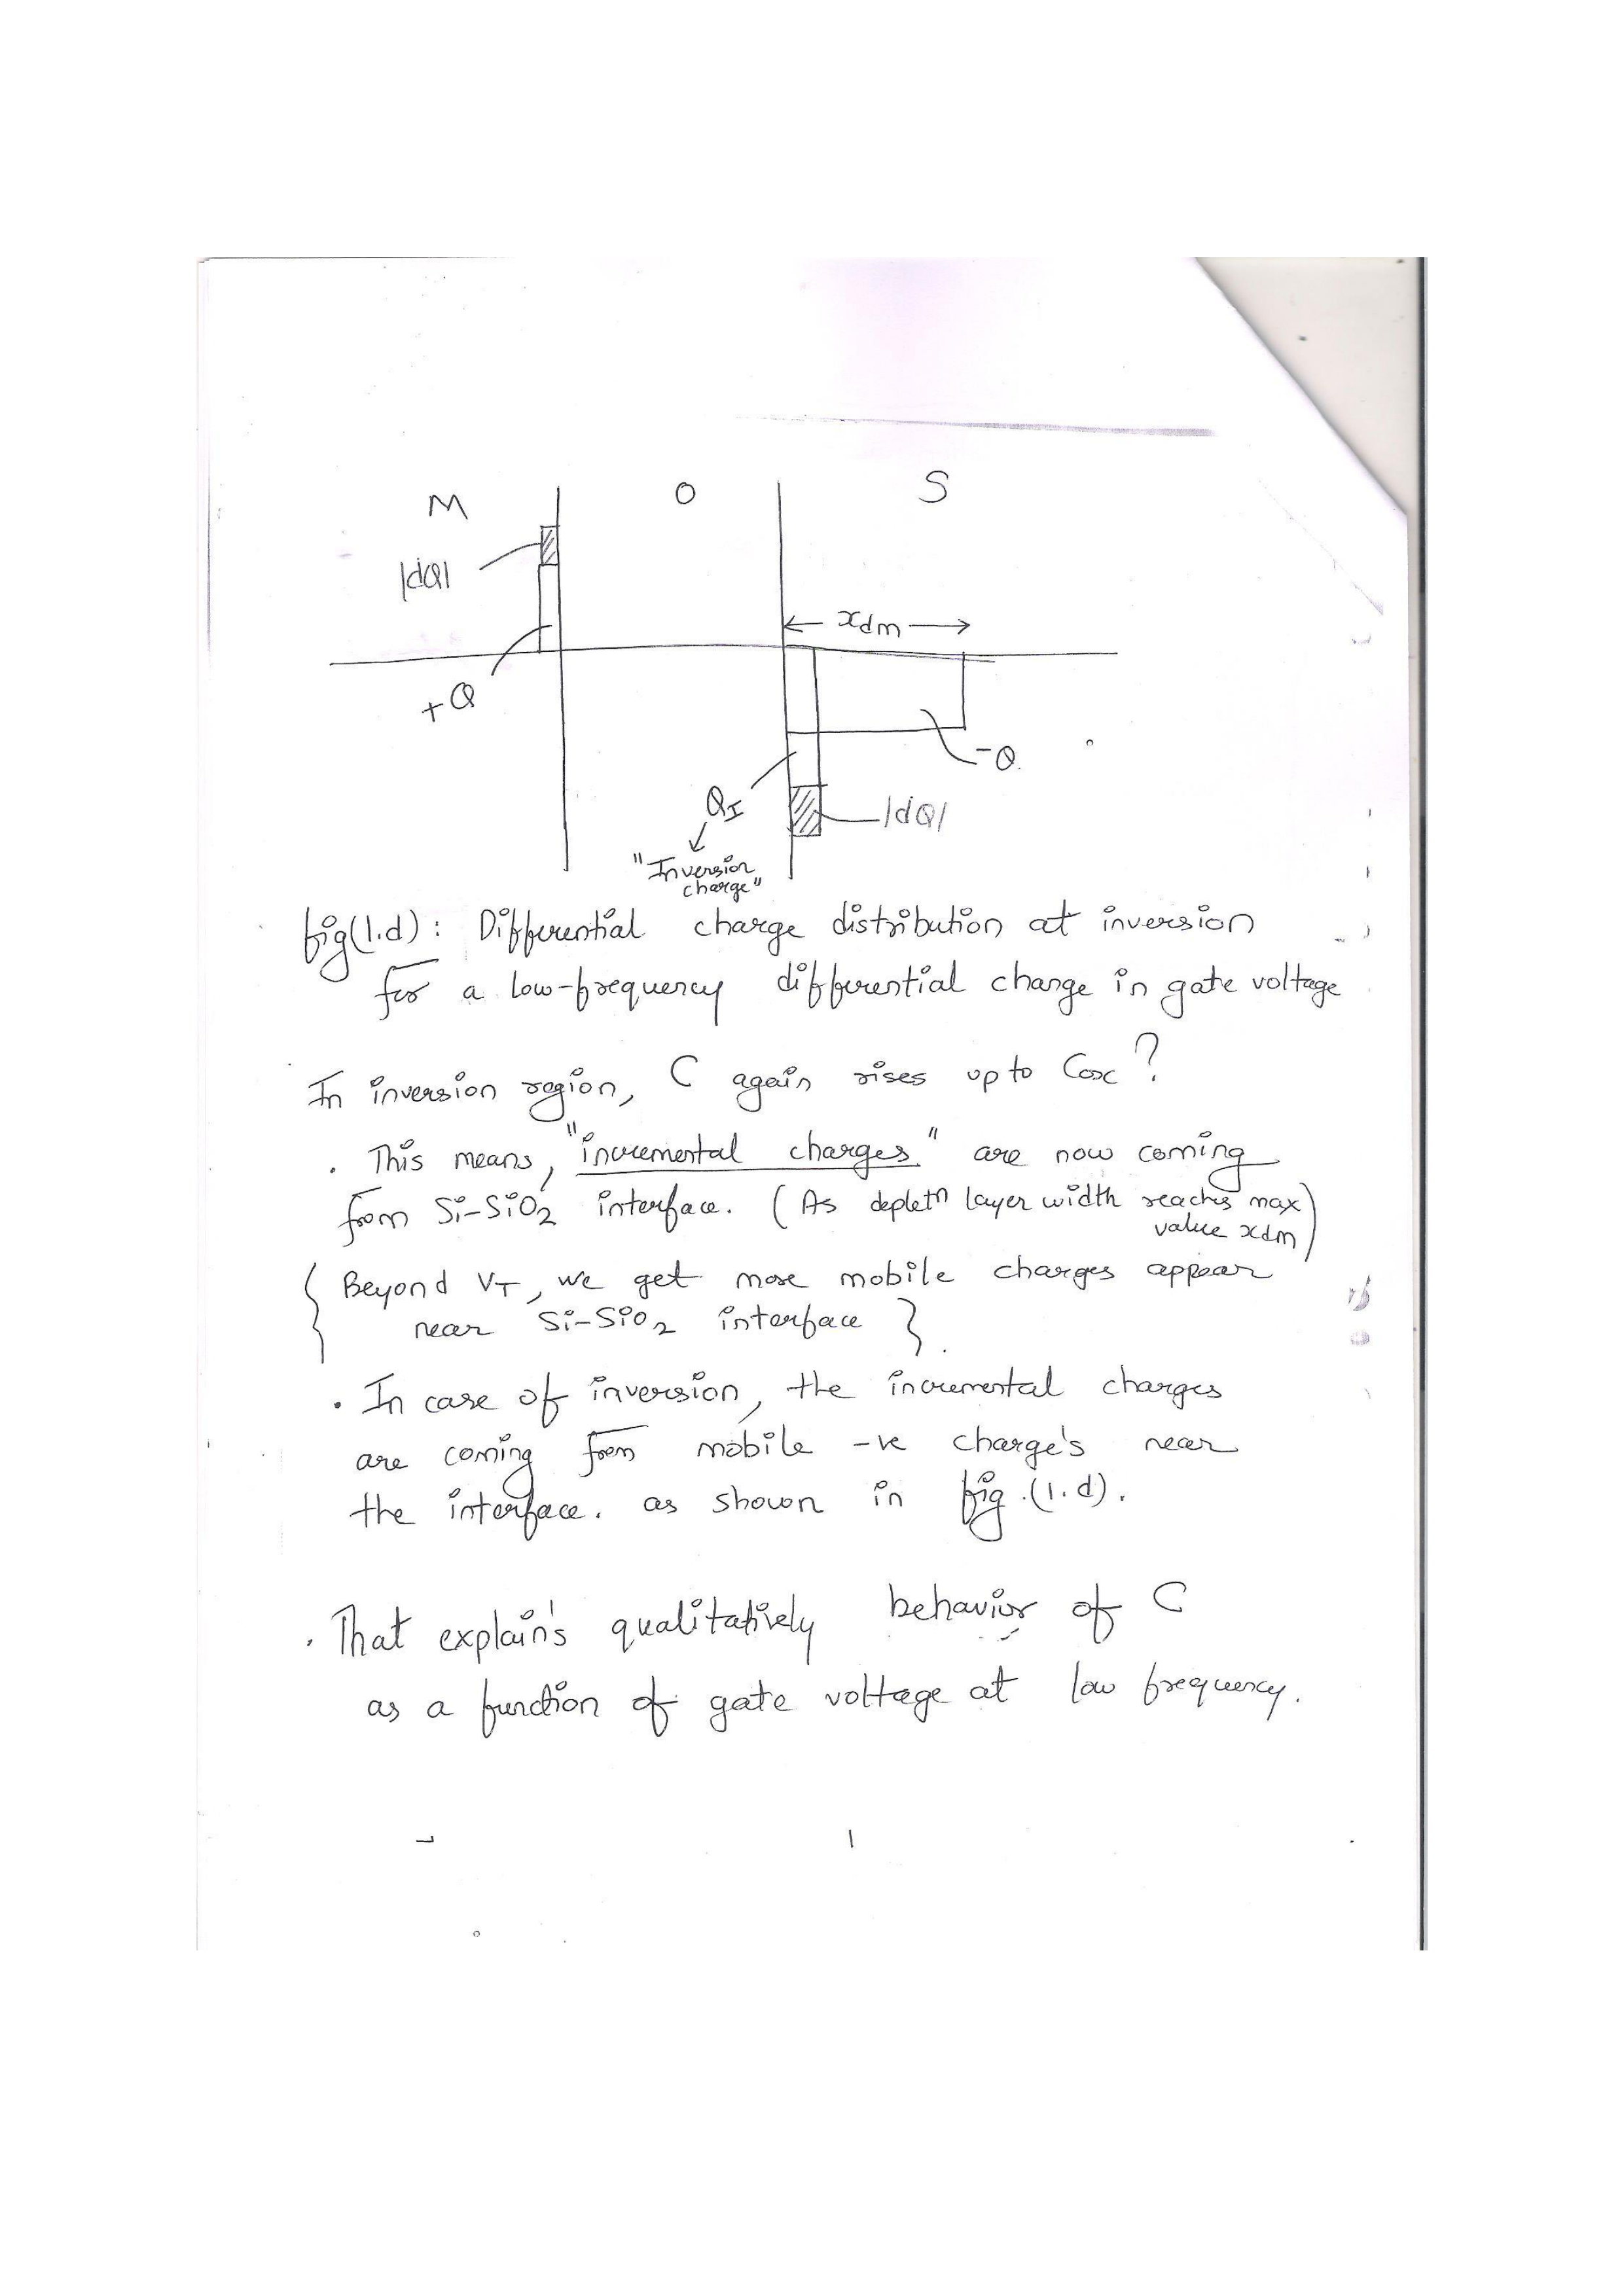 M O S
|dQ|
xdm
+Q
-Q
QI
|dQ|
"Inversion
charge"
fig(1.d): Differential charge distribution at inversion
for a low-frequency differential change in gate voltage
In inversion region, C again rises up to Cox?
. This means, "incremental charges" are now coming
from Si-SiO2 interface. (As depletn layer width reaches max
value xdm)
{ Beyond VT, we get more mobile charges appear
near Si-SiO2 interface }.
. In case of inversion, the incremental charges
are coming from mobile -ve charge's near
the interface. as shown in fig.(1.d).
. That explain's qualitatively behavior of C
as a function of gate voltage at low frequency.